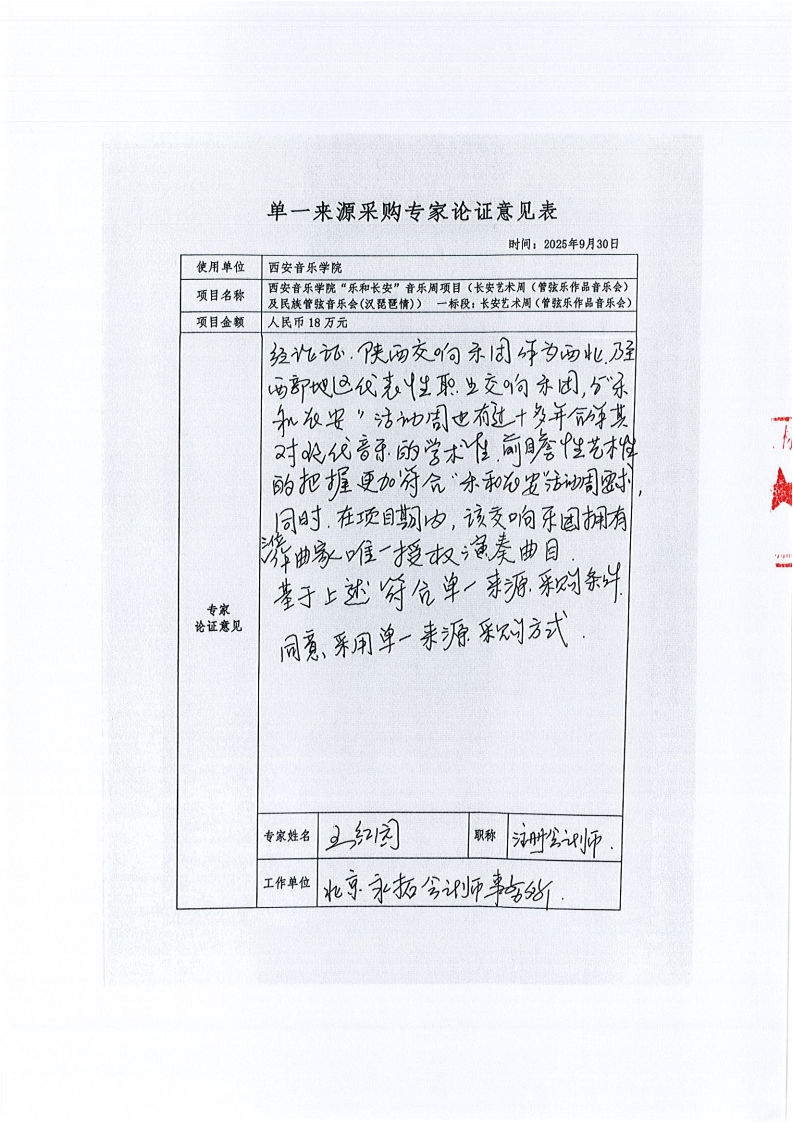 单一来源采购专家论证意见表
时间：2025年9月30日
使用单位 西安音乐学院
项目名称 西安音乐学院“乐和长安”音乐周项目（长安艺术周（管弦乐作品音乐会）
及民族管弦音乐会(汉琵琶情)） 一标段：长安艺术周（管弦乐作品音乐会）
项目金额 人民币18万元
专家
论证意见
经论证，陕西交响乐团作为西北，乃至
西部地区代表性职业交响乐团，与“乐
和长安”活动周也有过十多年合作其
对现代音乐的学术性、前瞻性艺术性
的把握更加符合“乐和长安”活动周要求，
同时，在项目期内，该交响乐团拥有
作曲家唯一授权演奏曲目．
基于上述符合单一来源采购条件．
同意采用单一来源采购方式．
专家姓名 王红
职称 注册会计师．
工作单位 北京永拓会计师事务所．